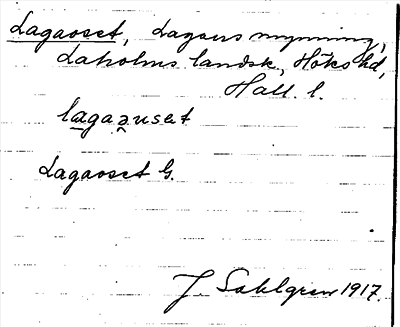 Lagaoset, Lagans mynning,
Laholms landsk., Höks hd,
Hall. l.
lagaauset
Lagaoset G.
J. Sahlgren 1917.